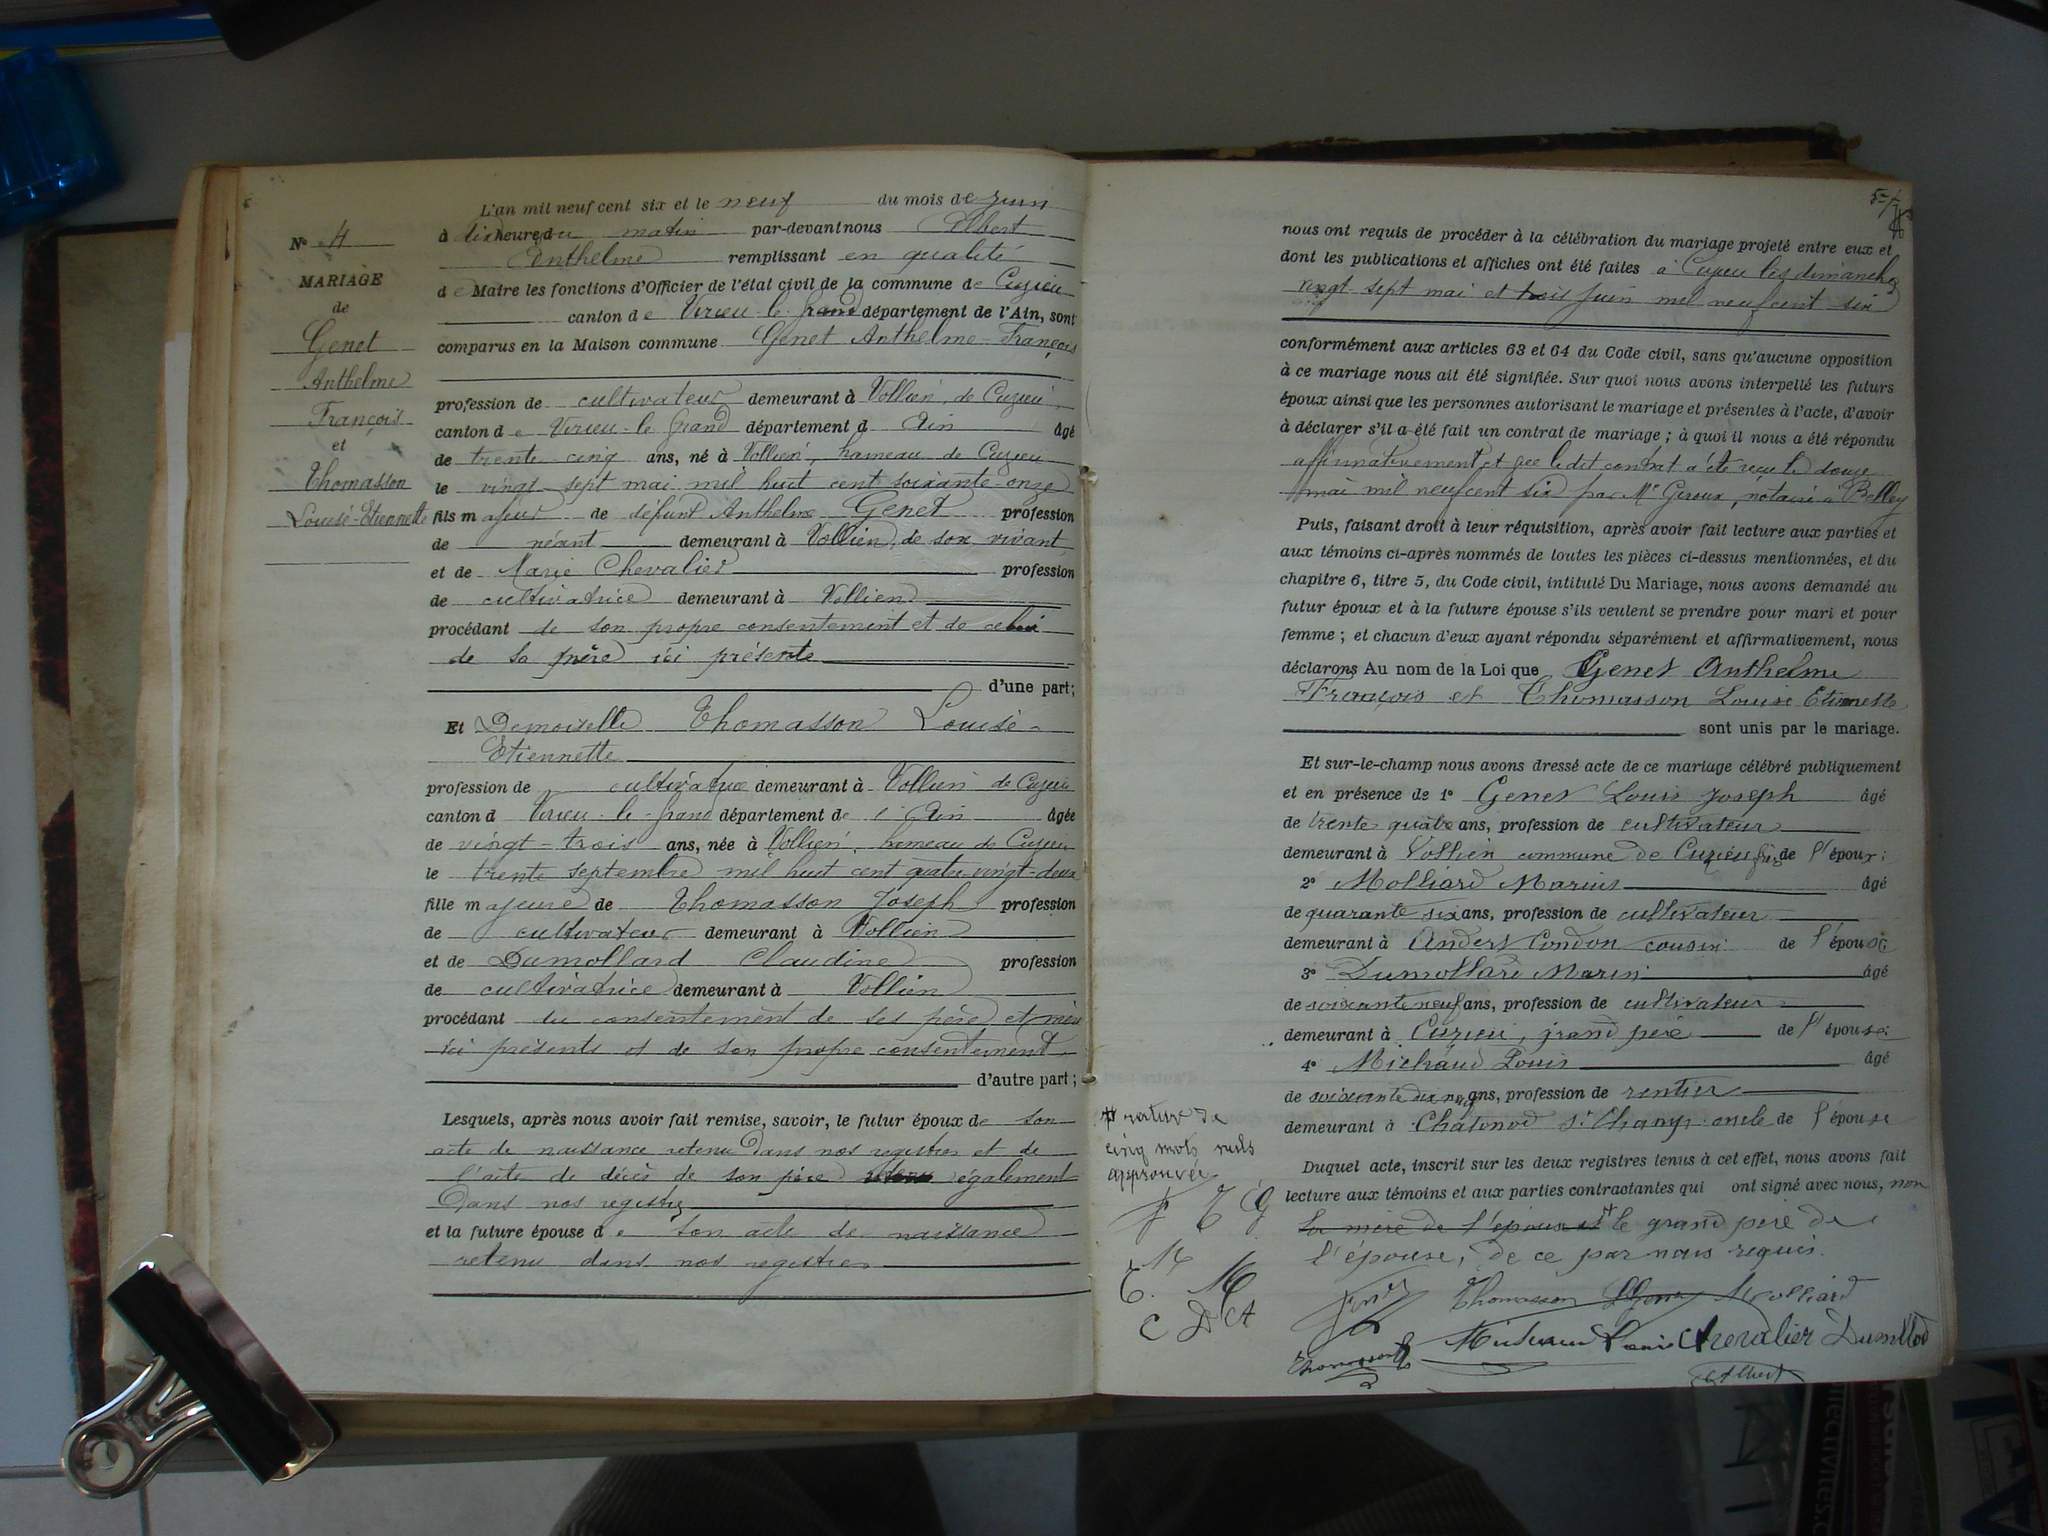 N° 4
MARIAGE
de
Genet
Anthelme
François
et
Thomasson
Louise-Etiennette
L'an mil neuf cent six et le neuf du mois de juin
à dix heures du matin par-devant nous Albert
Anthelme remplissant en qualité
de Maire les fonctions d'Officier de l'état civil de la commune de Cuzieu
canton de Virieu-le-Grand département de l'Ain, sont
comparus en la Maison commune Genet Anthelme-François
profession de cultivateur demeurant à Vollien, de Cuzieu
canton de Virieu-le-Grand département d Ain âgé
de trente-cinq ans, né à Vollien, hameau de Cuzieu
le vingt-sept mai mil huit cent soixante-onze
fils majeur de défunt Anthelme Genet profession
de néant demeurant à Vollien, de son vivant
et de Marie Chevalier profession
de cultivatrice demeurant à Vollien
procédant de son propre consentement et de celui
de sa mère ici présente
d'une part;
Et Demoiselle Thomasson Louise-
Etiennette
profession de cultivatrice demeurant à Vollien de Cuzieu
canton d Virieu-le-Grand département de l'Ain âgée
de vingt-trois ans, née à Vollien, hameau de Cuzieu
le trente septembre mil huit cent quatre-vingt-deux
fille majeure de Thomasson Joseph profession
de cultivateur demeurant à Vollien
et de Dumollard Claudine profession
de cultivatrice demeurant à Vollien
procédant du consentement de ses père et mère
ici présents et de son propre consentement
d'autre part;
Lesquels, après nous avoir fait remise, savoir, le futur époux de son
acte de naissance retenu dans nos registres et de
l'acte de décès de son père également
dans nos registres
et la future épouse de son acte de naissance
retenu dans nos registres
nous ont requis de procéder à la célébration du mariage projeté entre eux et
dont les publications et affiches ont été faites à Cuzieu les dimanches
vingt sept mai et trois juin mil neuf cent six
conformément aux articles 63 et 64 du Code civil, sans qu'aucune opposition
à ce mariage nous ait été signifiée. Sur quoi nous avons interpellé les futurs
époux ainsi que les personnes autorisant le mariage et présentes à l'acte, d'avoir
à déclarer s'il a été fait un contrat de mariage; à quoi il nous a été répondu
affirmativement et que ledit contrat a été reçu le douze
mai mil neuf cent six par Me Geroux, notaire à Belley
Puis, faisant droit à leur réquisition, après avoir fait lecture aux parties et
aux témoins ci-après nommés de toutes les pièces ci-dessus mentionnées, et du
chapitre 6, titre 5, du Code civil, intitulé Du Mariage, nous avons demandé au
futur époux et à la future épouse s'ils veulent se prendre pour mari et pour
femme; et chacun d'eux ayant répondu séparément et affirmativement, nous
déclarons Au nom de la Loi que Genet Anthelme
François et Thomasson Louise Etiennette
sont unis par le mariage.
Et sur-le-champ nous avons dressé acte de ce mariage célébré publiquement
et en présence de 1° Genet Louis Joseph âgé
de trente quatre ans, profession de cultivateur
demeurant à Vollien commune de Cuzieu frère de l'époux;
2° Molliard Marius âgé
de quarante six ans, profession de cultivateur
demeurant à Andert Condon cousin de l'épouse
3° Dumollard Marin âgé
de soixante neuf ans, profession de cultivateur
demeurant à Cuzieu, grand père de l'épouse
4° Michaud Louis âgé
de soixante dix neuf ans, profession de rentier
demeurant à Chatonod St Champ oncle de l'épouse
Duquel acte, inscrit sur les deux registres tenus à cet effet, nous avons fait
lecture aux témoins et aux parties contractantes qui ont signé avec nous, non
la mère de l'époux et le grand père de
l'épouse, de ce par nous requis.
rature de
cinq mots nuls
approuvée
T G
M
T. M
C D A
Thomasson LGenet Molliard
Michaud Louis Chevalier Dumollard
Thomasson
Albert